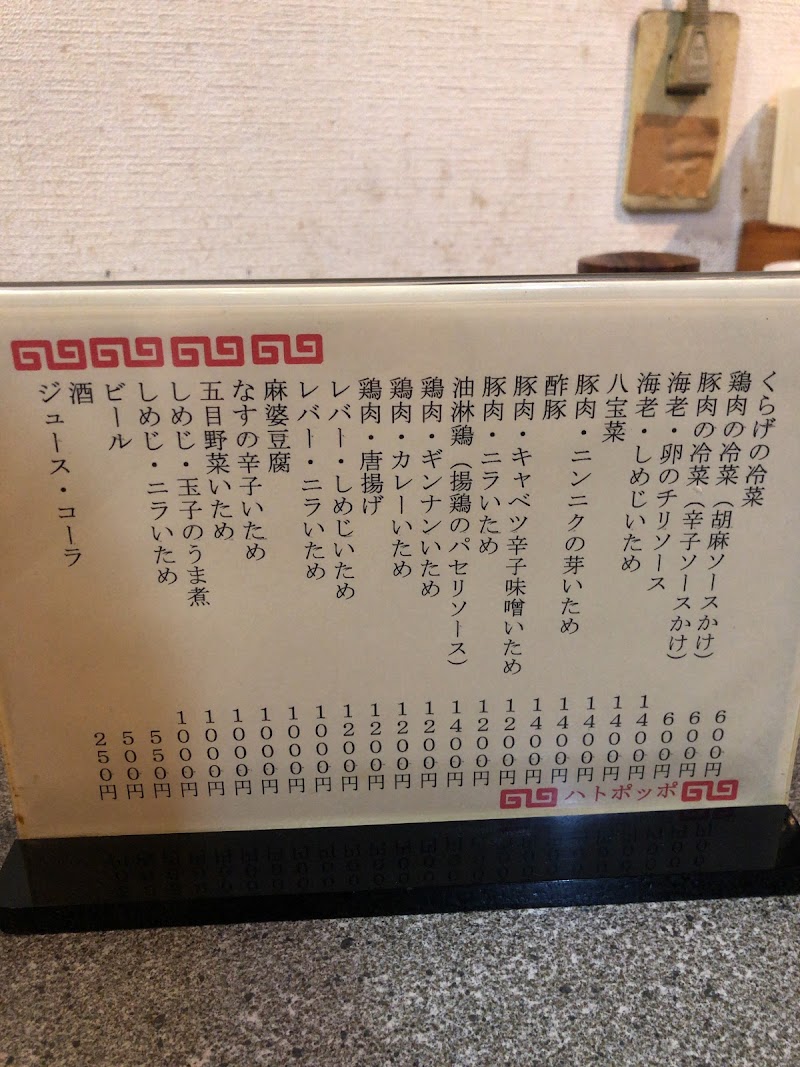 くらげの冷菜 600円
鶏肉の冷菜（胡麻ソースかけ） 600円
豚肉の冷菜（辛子ソースかけ） 600円
海老・卵のチリソース 1400円
海老・しめじいため 1400円
八宝菜 1400円
豚肉・ニンニクの芽いため 1400円
酢豚 1400円
豚肉・キャベツ辛子味噌いため 1200円
豚肉・ニラいため 1200円
油淋鶏（揚鶏のパセリソース） 1400円
鶏肉・ギンナンいため 1200円
鶏肉・カレーいため 1200円
鶏肉・唐揚げ 1200円
レバー・しめじいため 1200円
レバー・ニラいため 1000円
麻婆豆腐 1000円
なすの辛子いため 1000円
五目野菜いため 1000円
しめじ・玉子のうま煮 1000円
しめじ・ニラいため 1000円
ビール 550円
酒 500円
ジュース・コーラ 250円
ハトポッポ